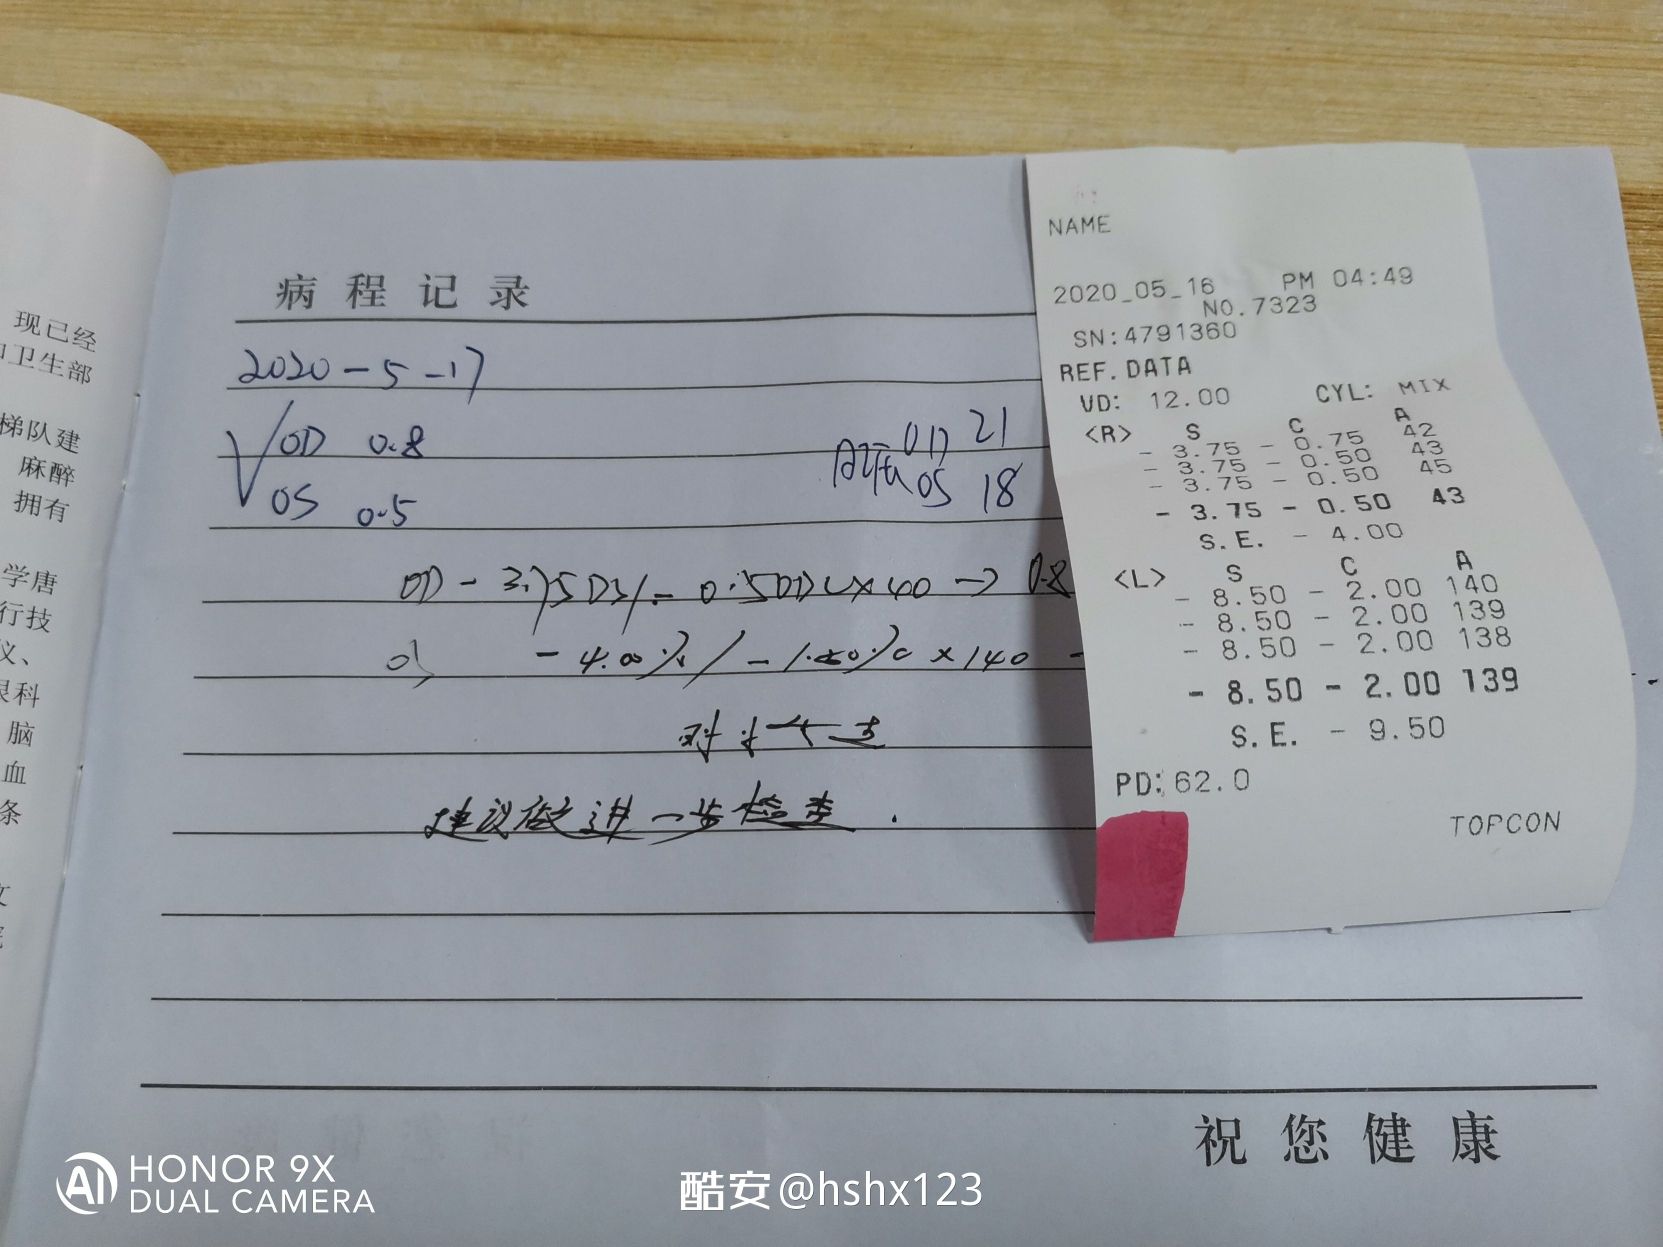 现已经
卫生部
梯队建
麻醉
拥有
学唐
行技
仪、
眼科
脑
血
条
病程记录
2020-5-17
V OD 0.8
OS 0.5
眼压 OD 21
OS 18
OD -3.75DS/-0.50DC×40→0.8
-4.00 / ×140 -
建议做进一步检查.
NAME
2020_05_16 PM 04:49
NO.7323
SN:4791360
REF.DATA
VD: 12.00 CYL: MIX
<R> S C A
- 3.75 - 0.75 42
- 3.75 - 0.50 43
- 3.75 - 0.50 45
- 3.75 - 0.50 43
S.E. - 4.00
<L> S C A
- 8.50 - 2.00 140
- 8.50 - 2.00 139
- 8.50 - 2.00 138
- 8.50 - 2.00 139
S.E. - 9.50
PD: 62.0
TOPCON
祝您健康
AI HONOR 9X
DUAL CAMERA
酷安@hshx123